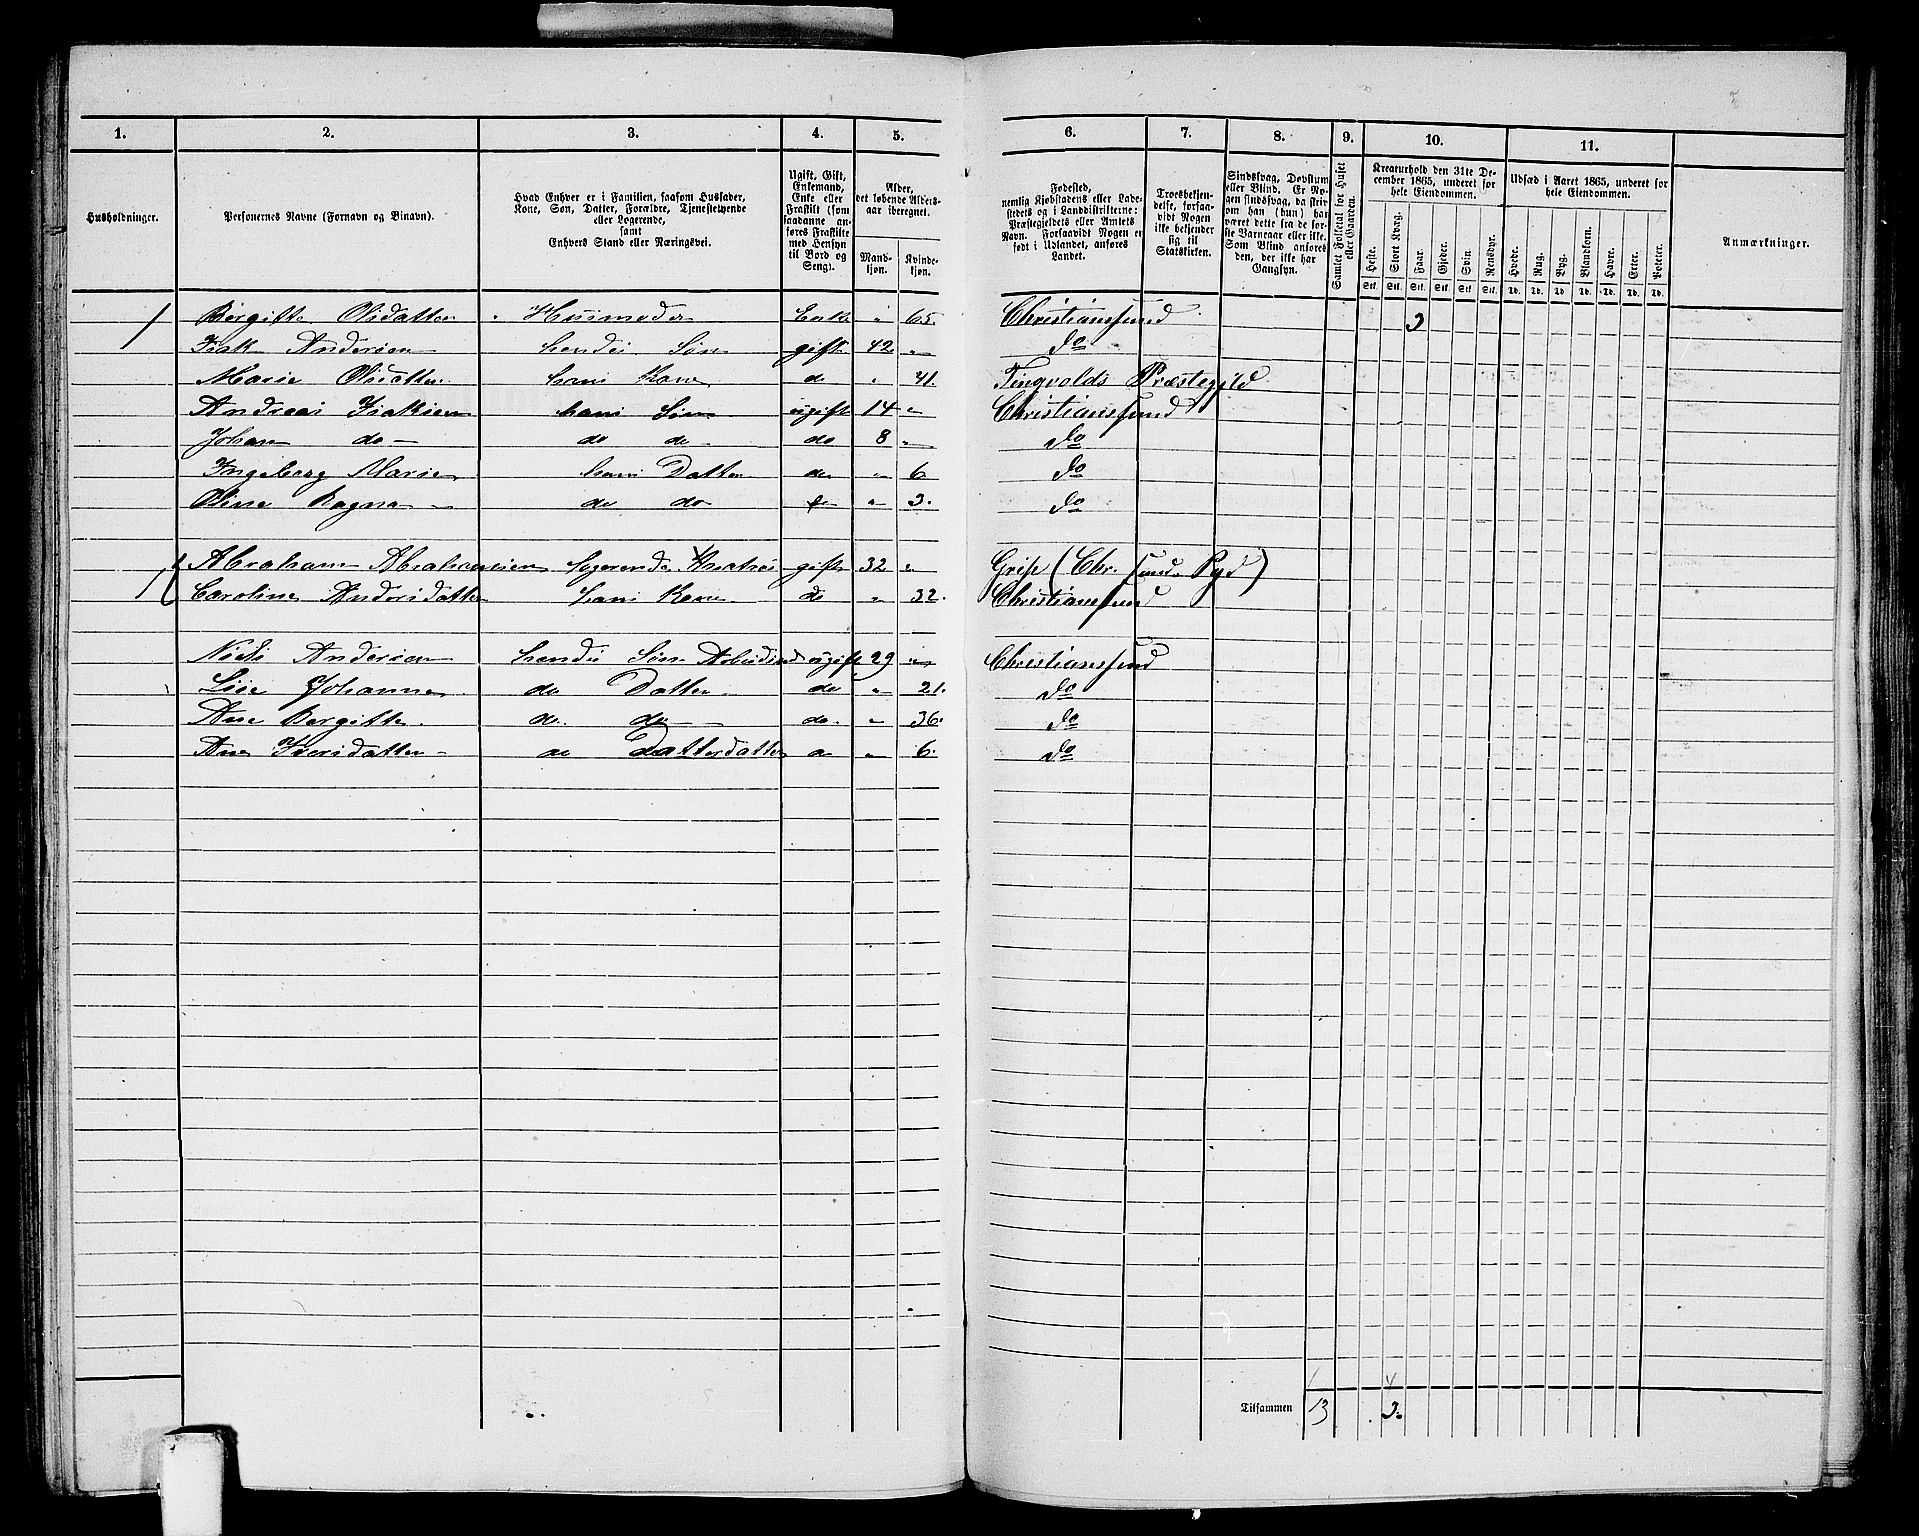 1. 2. 3. 4. 5. 6. 7. 8. 9. 10. 11.
Husholdninger.
Personernes Navne (Fornavn og Binavn).
Hvad Enhver er i Familien, saasom Husfader,
Kone, Søn, Datter, Forældre, Tjenestetyende
eller Logerende,
samt
Enhvers Stand eller Næringsvei.
Ugift, Gift,
Enkemand,
Enke eller
Fraskilt (som
saadanne an-
føres Fraskilte
med Hensyn
til Bord og
Seng).
Alder,
det løbende Alders-
aar iberegnet.
Mand-
kjøn.
Kvinde-
kjøn.
Fødested,
nemlig Kjøbstadens eller Lade-
stedets og i Landdistrikterne:
Præstegjeldets eller Amtets
Navn. Forsaavidt Nogen er
født i Udlandet, anføres
Landet.
Troesbekjen-
delse, forsaa-
vidt Nogen
ikke bekjender
sig til
Statskirken.
Sindssvag, Døvstum
eller Blind. Er No-
gen sindssvag, da skriv
om han (hun) har
været dette fra de før-
ste Barneaar eller ikke.
Som Blind anføres
den, der ikke har
Gangsyn.
Samlet Folketal for Huset
eller Gaarden.
Kreaturhold den 31te De-
cember 1865, underet for
hele Eiendommen.
Heste. Stort Kvæg. Faar. Gjeder. Svin. Rensdyr.
Stk. Stk. Stk. Stk. Stk. Stk.
Udsæd i Aaret 1865, underet for
hele Eiendommen.
Hvede. Rug. Byg. Blandkorn. Havre. Erter. Poteter.
Td. Td. Td. Td. Td. Td. Td.
Anmærkninger.
/ Bergitte Olsdatter Husmoder Enke " 65. Christianssund 3
Isak Andersen hendes Søn gift 42 " do
Marie Olsdatter hans Kone do " 41. Tingvolds Præstegjld
Andreas Isaksen hans Søn ugift 14 " Christianssund
Johan do - do do do 8 " do
Ingeborg Marie hans Datter do " 6 do
Oline Ragna - do do do " 3. do
/ Abraham Abrahamsen Logerende gift 32 " Grip (Chr. sunds Pgd)
Caroline Andersdatter hans Kone do " 32. Christianssund
Niels Andersen hendes Søn ugift 29 " Christianssund
Lise Johanne do Datter do " 21. do
Ane Bergitte do. do do " 36. do
Ane Iversdatter do Datterdatter do " 6. do
Tilsammen 13 3.